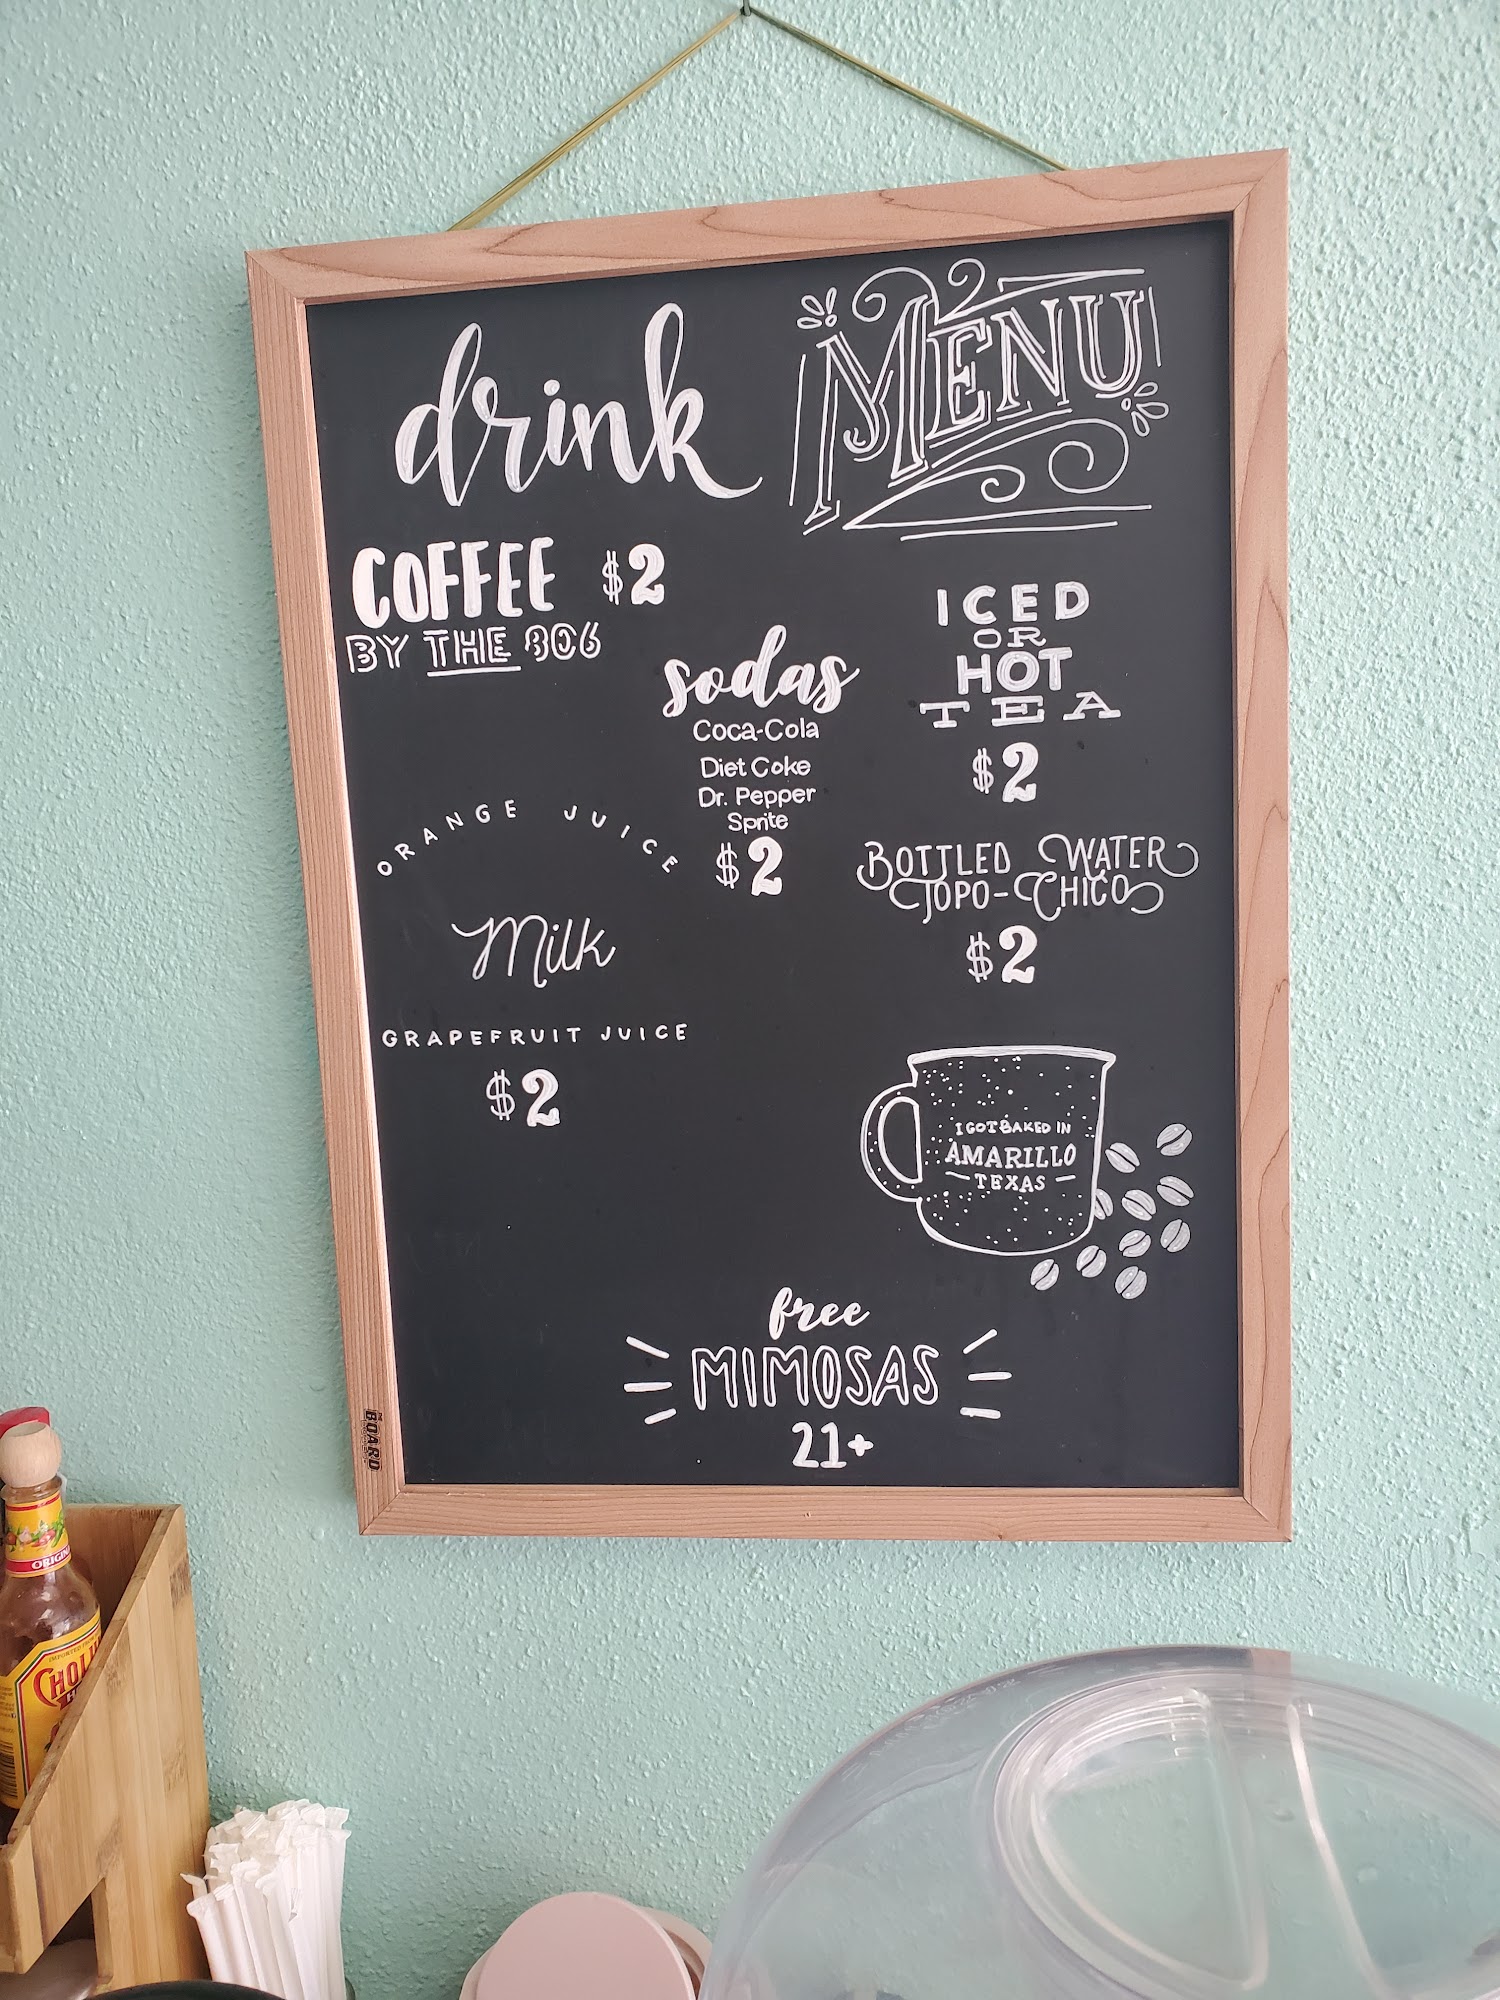 drink MENU
COFFEE $2
BY THE 806
sodas
Coca-Cola
Diet Coke
Dr. Pepper
Sprite
$2
ICED
OR
HOT
TEA
$2
ORANGE JUICE
Milk
GRAPEFRUIT JUICE
$2
BOTTLED WATER
TOPO-CHICO
$2
I GOT BAKED IN
AMARILLO
TEXAS
free
MIMOSAS
21+
BOARD
ORIGIN
CHOLU